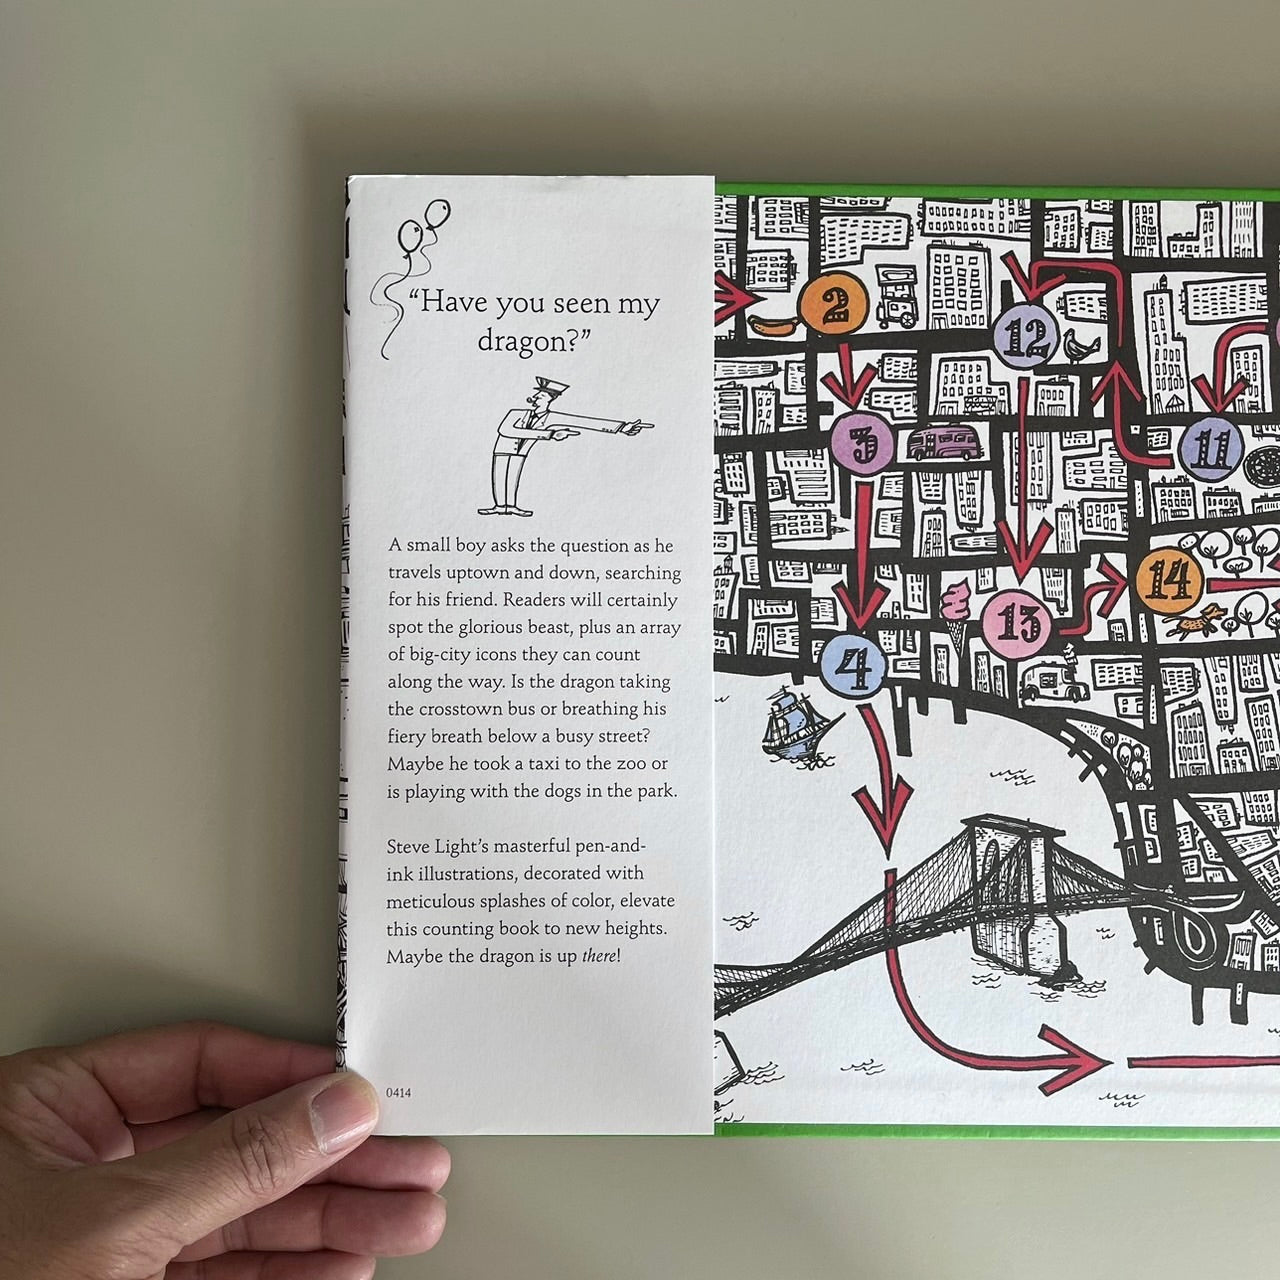 “Have you seen my
dragon?”
A small boy asks the question as he
travels uptown and down, searching
for his friend. Readers will certainly
spot the glorious beast, plus an array
of big-city icons they can count
along the way. Is the dragon taking
the crosstown bus or breathing his
fiery breath below a busy street?
Maybe he took a taxi to the zoo or
is playing with the dogs in the park.
Steve Light’s masterful pen-and-
ink illustrations, decorated with
meticulous splashes of color, elevate
this counting book to new heights.
Maybe the dragon is up there!
0414
2
12
3
11
14
13
4